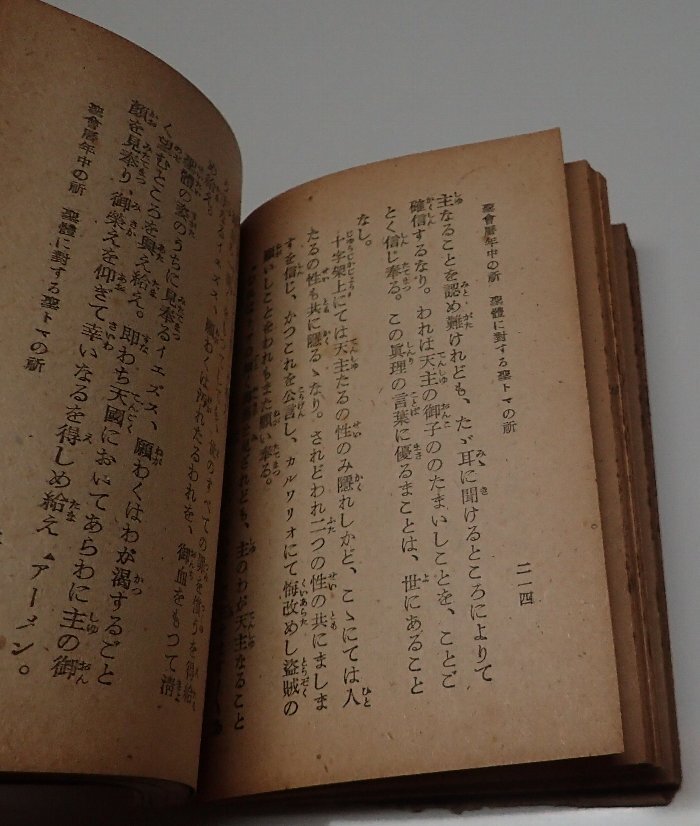 聖會暦年中の祈　聖體に對する聖トマの祈
二一四
主なることを認め難けれども、たゞ耳に聞けるところによりて
確信するなり。われは天主の御子ののたまいしことを、ことご
とく信じ奉る。この眞理の言葉に優るまことは、世にあること
なし。
十字架上にては天主たるの性のみ隱れしかど、こゝにては人
たるの性も共に隱るゝなり。されどわれ二つの性の共にましま
すを信じ、かつこれを公言し、カルワリオにて悔改めし盜賊の
願いしことをわれもまた願い奉る。
されども、主のわが天主なること
御血をもつて淸
め給え。
聖體の裘のうちに見奉るイエズス、願わくはわが渴するごと
く望むところを與え給え。卽わち天國においてあらわに主の御
顏を見奉り、御榮えを仰ぎて幸いなるを得しめ給え アーメン。
聖會暦年中の祈　聖體に對する聖トマの祈